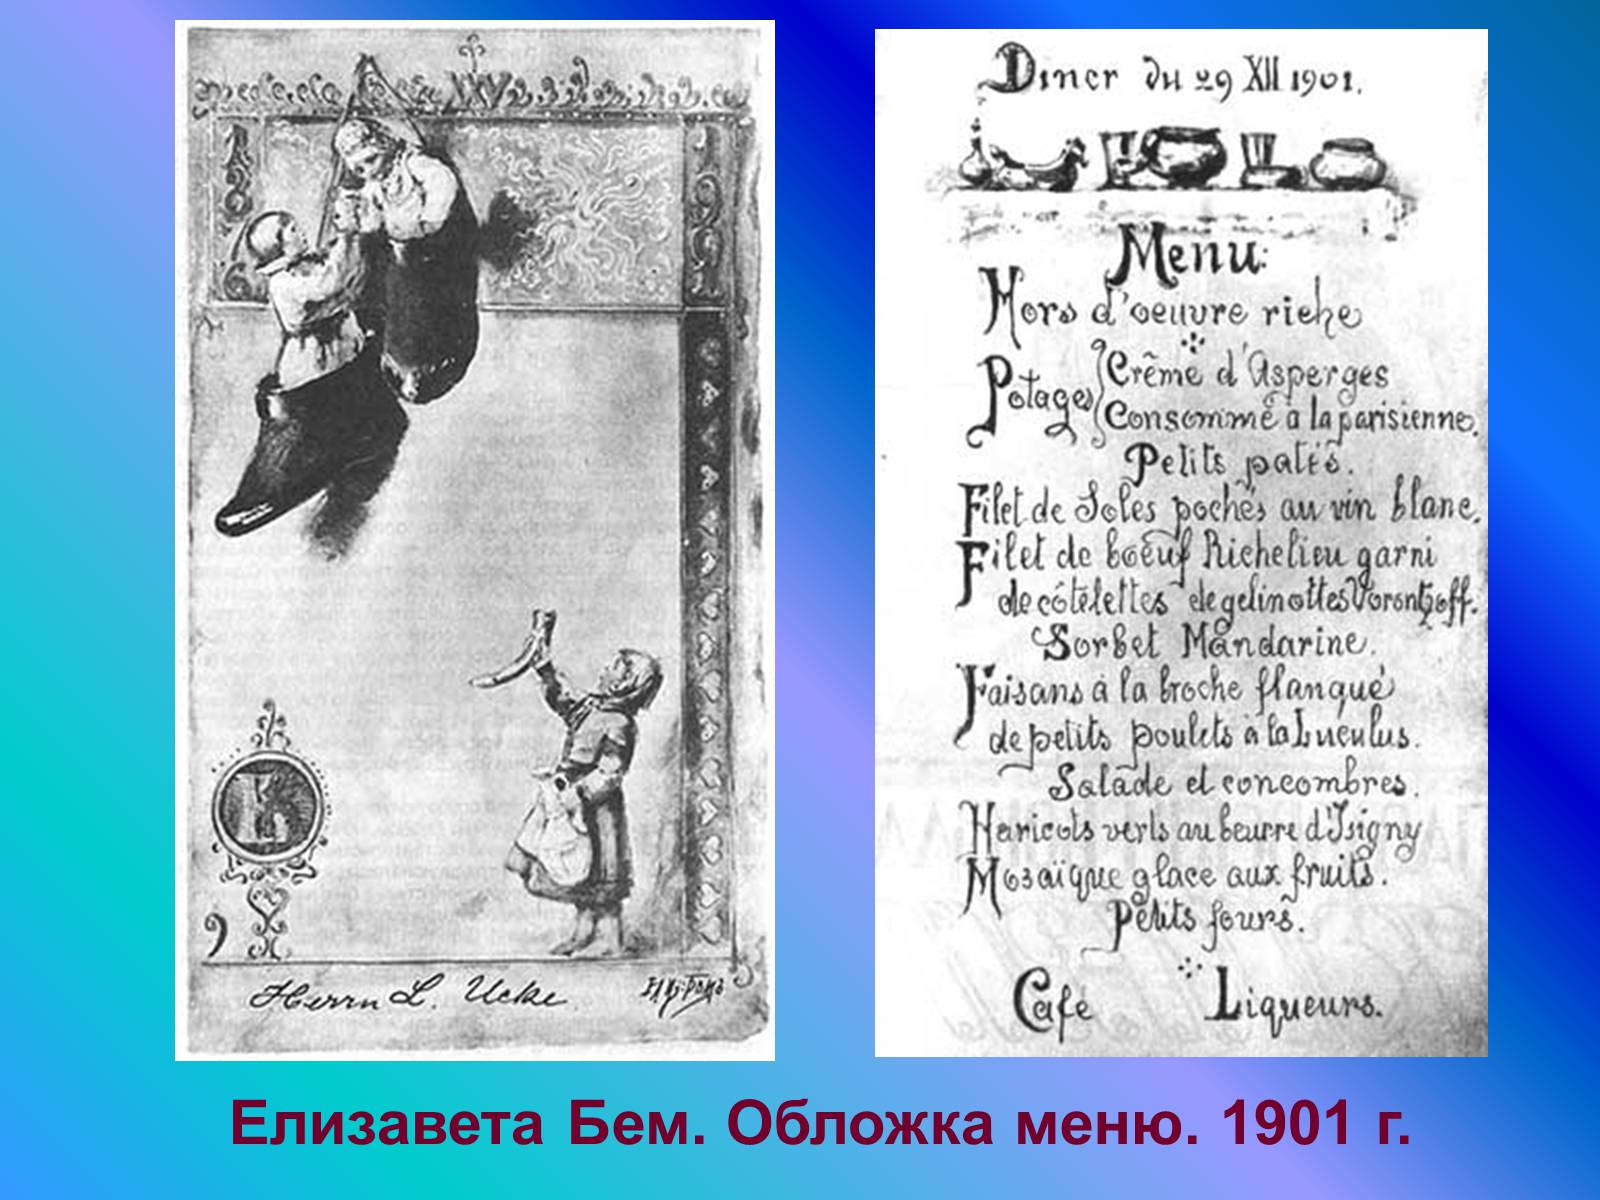 1876
1901
Herrn L. Ucke
Diner du 29 XII 1901.
Menu:
Hors d'oeuvre riche
Potages
Crême d'Asperges
Consommé à la parisienne.
Petits patés.
Filet de Soles pochés au vin blanc.
Filet de boeuf Richelieu garni
de côtelettes de gelinottes Vorontzoff.
Sorbet Mandarine.
Faisans à la broche flanqué
de petits poulets à la Luculus.
Salade et concombres.
Haricots verts au beurre d'Isigny
Mosaïque glace aux fruits.
Petits fours.
Café Liqueurs.
Елизавета Бем. Обложка меню. 1901 г.